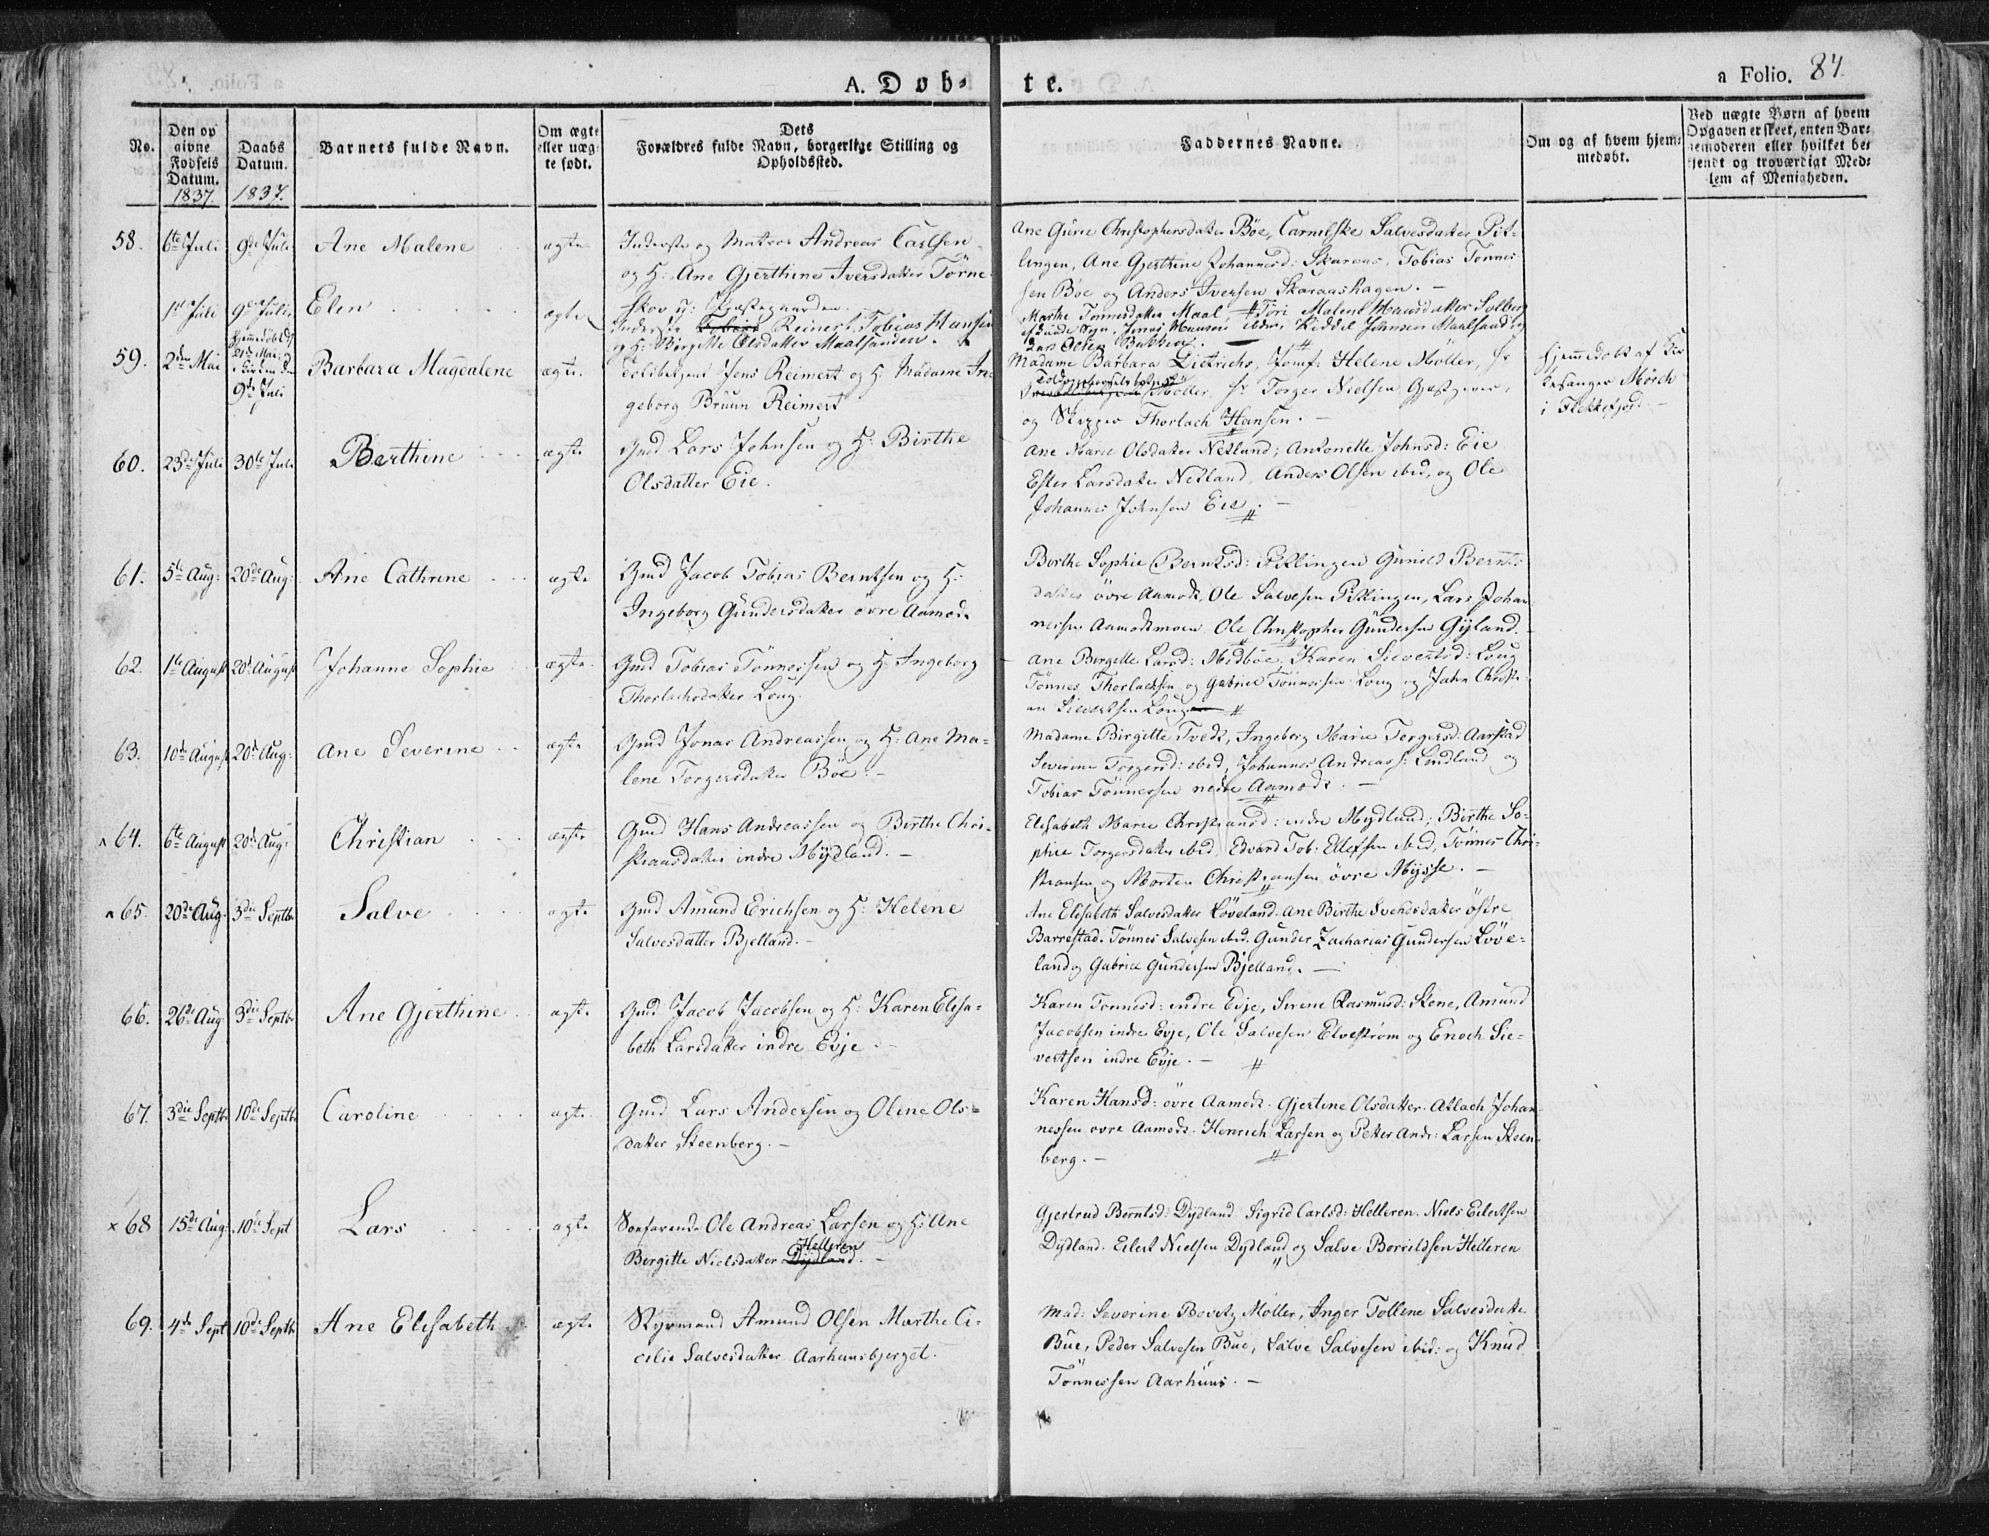 A. Dob-
te.
a Folio. 84.
No.
Den op
givne
Fødsels
Datum.
1837.
Daabs
Datum.
1837.
Barnets fulde Navn.
Om ægte
eller uæg-
te født.
Dets
Forældres fulde Navn, borgerlige Stilling og
Opholdssted.
Faddernes Navne.
Om og af hvem hjem-
medøbt.
Ved uægte Børn af hvem
Opgaven er skeet, enten Bar-
nemoderen eller hvilket be-
kjendt og troværdigt Med-
lem af Menigheden.
58. 6te Juli 9de Juli Ane Malene ægte
Inderste og Matros Andreas Carlsen
og H: Ane Gjerthine Iversdatter Törne-
skov
Ane Gurie Christophersdatter Böe, Salvesdatter Pit-
lingen, Ane Gjerthine Johannesd: Skaraas, Tobias Tönnes
sen Böe og Anders Iversen Skaraashagen. -
1ste Juli 9de Juli Elen ægte
Inderste Reinert Tobias Hansen
og H: Birgitte Olsdatter Maalsanden.
Marthe Tönnesdatter Maal, Malene Hansdatter Solberg
Jonas Hansen ibdm, Johnsen Maalsand og
Lars Olsen Bakken.
59. 2den Mai
21de Mai
9de Juli
Barbara Magdalene ægte
Jens Reimert og H. Madame In-
geborg Bruun Reimert
Madame Barbara Dietrichs, Jomf: Helene Möller, Hr
Möller, Hr Torger Nielsen Gjestgiver,
og Skipper Thorlach Hansen. -
Hjemmedöbt af
Kirkesanger Mörch
i Flekkefjord. -
60. 23de Juli 30te Juli Berthine ægte
Gmd Lars Johnsen og H: Birthe
Olsdatter Eie.
Ane Marie Olsdatter Netland; Antonette Johnsd: Eie
Ester Larsdatter Netland, Anders Olsen ibid, og Ole
Johannes Johnsen Eie. -
61. 5te Aug: 20de Aug: Ane Cathrine ægte
Gmd Jacob Tobias Berntsen og H:
Ingeborg Gundersdatter övre Aamodt
Berthe Sophie Berntsd: Pitlingen Gunild Bernts
datter övre Aamodt, Ole Salvesen Pitlingen, Lars Johan
nessen Aamodtmoen Ole Christopher Gundersen Gyland.
62. 1ste August 20de August Johanne Sophie ægte
Gmd Tobias Tönnessen og H. Ingeborg
Thorlachsdatter Loug.
Ane Birgitte Larsd: Midböe, Karen Sievertsd: Loug
Tönnes Thorlachsen og Gabriel Tönnessen Loug og John Christi-
an Sievertsen Loug
63. 10de August 20de Aug: Ane Severine ægte
Gmd Jonas Andreassen og H: Ane Ma-
lene Torgersdatter Böe. -
Madame Birgitte Tvedt, Ingeborg Marie Torgersd: Aarstad
Severine Torgersd: ibid, Johannes Andreass: Lindland og
Tobias Tönnessen nedre Aamodt. -
64. 6te August 20de Aug: Christian ægte
Gmd Hans Andreassen og Birthe Chri-
stiansdatter indre Mydland. -
Elisabeth Marie Christiansd: indre Mydland; Birthe So-
phie Torgersdatter ibid, Edvard Tob: Ellefsen ibid, Tönnes Chri-
stiansen og Morten Christiansen övre Mysse. -
65. 20de Aug: 3die Septbr Salve ægte
Gmd Amund Erichsen og H: Helene
Salvesdatter Bjelland. -
Ane Elisabeth Salvesdatter Löveland. Ane Birthe Svendsdatter östre
Barrestad. Tönnes Salvesen ibid. Gunder Zacharias Gundersen Löve-
land og Gabriel Gundersen Bjelland. -
66. 26de Aug 3die Septbr Ane Gjerthine ægte
Gmd Jacob Jacobsen og H: Karen Elisa-
beth Larsdatter indre Evje. -
Karen Tonnesd: indre Evje, Serene Rasmusd: Stene, Amund
Jacobsen indre Evje, Ole Salvesen Elvestrøm og Enoch Sie-
vertsen indre Evje. -
67. 3die Septbr 10de Septbr Caroline ægte
Gmd Lars Andersen og Oline Ols-
datter Steenberg. -
Karen Hansd: övre Aamodt. Gjertine Olsdatter. Atlach Johan
nessen övre Aamodt. Henrich Larsen og Petter Andr: Larsen Steen
berg. -
× 68 15de Aug: 10de Sept Lars ægte
Sönfarende Ole Andreas Larsen og H: Ane
Birgitte Nielsdatter Dydland. Helleren -
Gjertrud Berntsd: Dydland Sigrid Carlsd: Helleren. Niels Eilertsen
Dydland. Eilert Nielsen Dydland og Salve Borrildsen Helleren
69. 4de Sept 10de Septbr Ane Elisabeth ægte
Styrmand Amund Olsen Marthe Ci-
cilie Salvesdatter Aarhuusbjerget.
Mad: Severine Bovitz Møller, Inger Tolline Salvesdatter
Bue, Peder Salvesen Bue, Salve Salvesen ibid: og Knud
Tönnessen Aarhuus. -